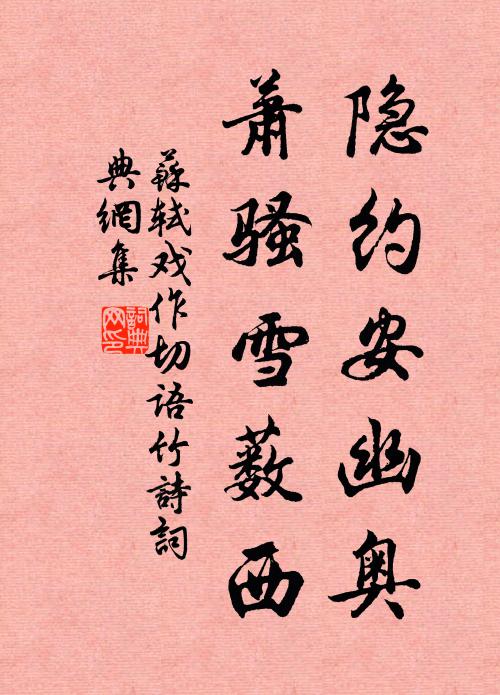 隐约安幽奥
萧骚雪薮西
蘇軾戏作切语竹詩詞
典網集
詞典
网印